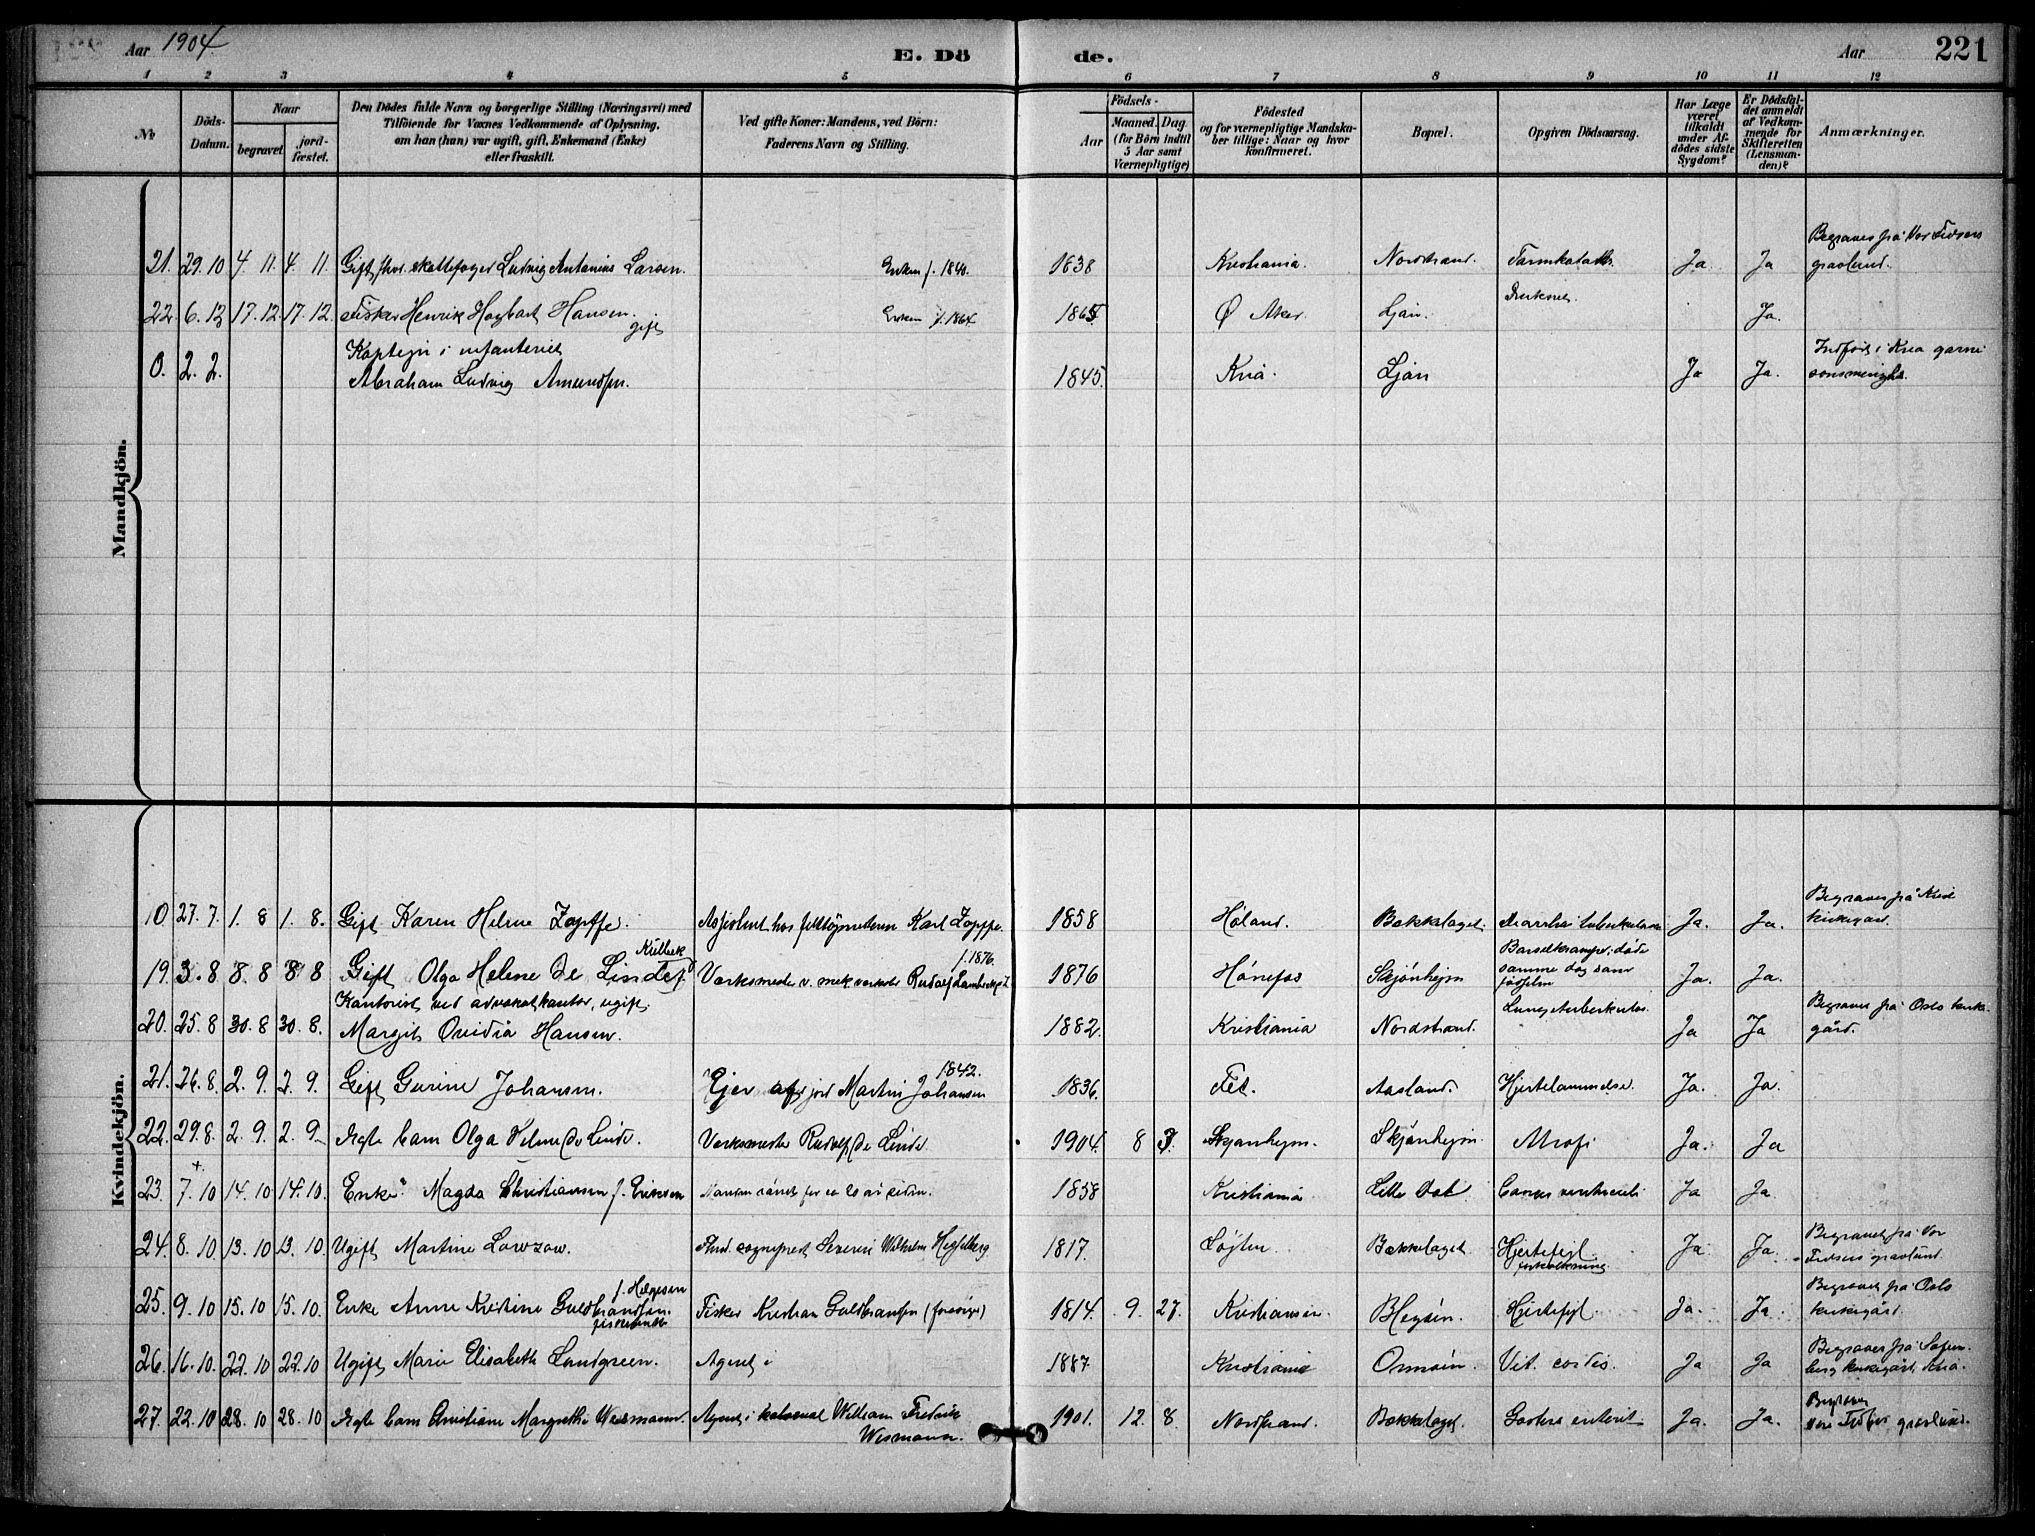 Aar 1904. E. Dö de. Aar 221
1 2 3 4 5 6 7 8 9 10 11 12
No
Döds-Datum.
Naar
begravet
jordfæstet.
Den Dödes fulde Navn og borgerlige Stilling (Næringsvei) med
Tilföiende for Voxnes Vedkommende af Oplysning,
om han (hun) var ugift, gift, Enkemand (Enke)
eller fraskilt.
Ved gifte Koner: Mandens, ved Börn:
Faderens Navn og Stilling.
Födsels-
Aar
Maaned. Dag
(for Börn indtil
5 Aar samt
Værnepligtige)
Födested
og for værnepligtige Mandska-
ber tillige: Naar og hvor
konfirmeret.
Bopæl.
Opgiven Dödsaarsag.
Har Læge
været
tilkaldt
under Af-
dödes sidste
Sygdom?
Er Dödsfal-
det anmeldt
af Vedkom-
mende for
Skifteretten
(Lensman-
den)?
Anmærkninger.
Mandkjön.
21. 29.10 4. 11. 4. 11. Gift, skattefoged Ludvig Antonius Larsen. Enken f. 1840. 1838 Kristiania. Nordstrand. Ja. Ja Begravet på Vor Frelsers gravlund.
22. 6.12 17.12. 17.12. Fisker Henrik Hansen. gift Enken f. 1864 1865 Ø Aker. Ljan. Druknet. Ja.
0. 2.2. Kaptejn i infanteriet
Abraham Ludvig Amundsen. 1845. Kria. Ljan Ja Ja. Indført i Kria garnisonsmenighed.
Kvindekjön.
10 27.7. 1. 8 1. 8. Gift Karen Helene Zopffe. Karl Zopffe. 1858 Høland. Bækkelaget. Ja. Ja. Begravet på
19. 3.8 8.8 8 8 Gift Olga Helene de Linde f. Verksmester v. mek verksted Rudolf f. 1876. 1876 Hønefos Skjønhejm Barselkramper; døde samme dag som Ja. Ja.
20. 25.8 30.8 30.8. Kontorist ved advokatkontor, ugift
Margit Ovidia Hansen. 1882. Kristiania Nordstrand. Lungetuberkulos. Ja Ja Begravet på Oslo kirkegård.
21. 26.8. 2.9. 2.9. Gift Gurine Johansen. Ejer af jord Martin Johansen 1842. 1836. Fet. Aasland. Hjertelammelse. Ja. Ja.
22. 29.8. 2.9. 2.9. Ægte barn Olga Helene de Linde. Verksmester Rudolf de Linde 1904. 8 3. Skjønhejm. Skjønhejm. Atrofi Ja. Ja
23. 7.10 14.10 14.10. Enke Magda Christiansen f. Eriksen 1858 Kristiania Lille Dal Cancer ventriculi Ja Ja.
24. 8.10 13.10 13.10. Ugift Martine Lowzow. Wilhelm Hesselberg 1817. Løjten. Bækkelaget Hjertefejl Ja. Ja. Begravet på Vor Frelsers gravlund.
25. 9.10 15.10 15.10. Enke Anne Kristine Guldbrandsen f. Helgesen Fisker Kristian Guldbrandsen (forrige) 1814. 9. 27. Kristiansen. Blegøen. Hjertefejl. Ja. Ja Begravet på Oslo kirkegård.
26. 16.10. 22.10 22.10 Ugift Marie Elisabeth Lundgreen. Agent 1887. Kristiania Ormøen. Vit. cordis. Ja Ja Begravet på Sofienberg kirkegård, Kria.
27. 22.10 28.10 28.10 Ægte barn Christiane Margrethe Wesmann. Agent i kolonial William Fredrik
Wesmann. 1901. 12. 8. Nordstrand. Bækkelaget. Gastro enterit Ja. Ja. Begravet Vor Frelsers gravlund.